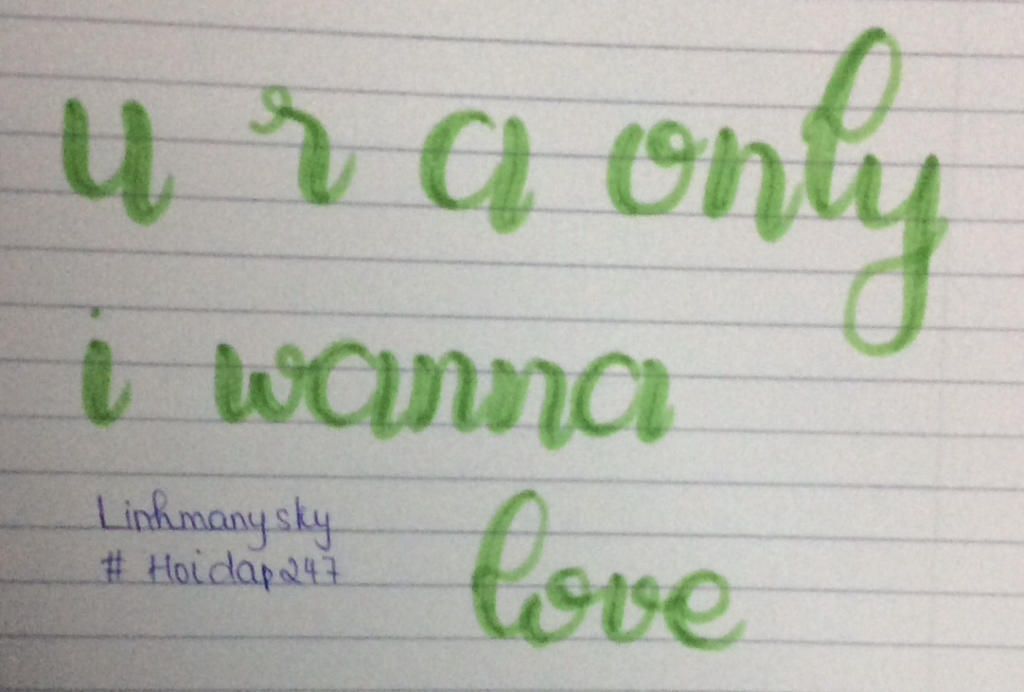 u r a only
i wanna
love
Linhmanysky
# Hoidap247